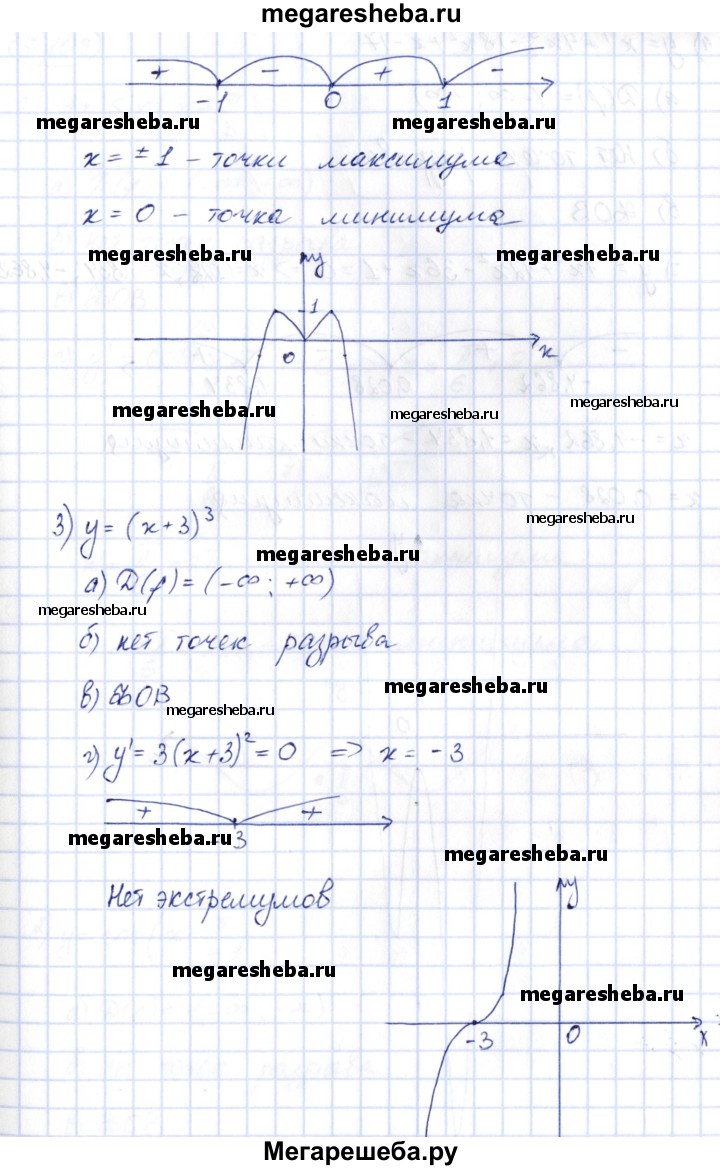 megaresheba.ru
+ - + -
-1 0 1
megaresheba.ru megaresheba.ru
x = ± 1 - точки максимума
x = 0 - точка минимума
megaresheba.ru megaresheba.ru
y
1
0 x
megaresheba.ru megaresheba.ru megaresheba.ru
3) y = (x+3)³
megaresheba.ru
megaresheba.ru
а) D(f) = (-∞; +∞)
megaresheba.ru
б) нет точек разрыва
megaresheba.ru
в) ОВ
megaresheba.ru
г) y' = 3(x+3)² = 0 => x = -3
+ +
megaresheba.ru 3
megaresheba.ru
Нет экстремумов
y
megaresheba.ru
megaresheba.ru
-3 0 x
Мегарешеба.ру